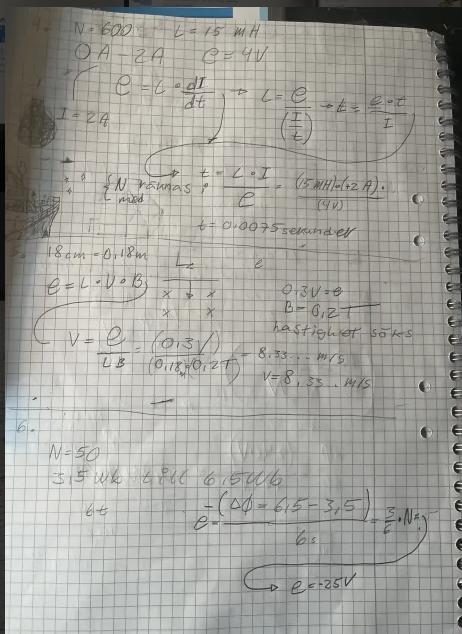 4.
N=600 L = 15 mH
0 A - 2A e = 4V
e = L · dI/dt → L = e/(I/t) → L = e·t/I
I = 2A
t = L · I / e = (15 mH)·(+2 A) / (4V)
{N räknas med
t = 0.0075 sekunder
18cm = 0,18m
e = L · V · B
x x
x x
0,3V = e
B = 0,2T
hastighet söks
V = e / LB = (0,3V) / (0,18m)(0,2T) = 8,33... m/s
V = 8,33... m/s
6.
N=50
3,5 Wb till 6,5Wb
6s
e = -(ΔΦ = 6,5 - 3,5) / 6s = 3/6 · N =
e = -25V